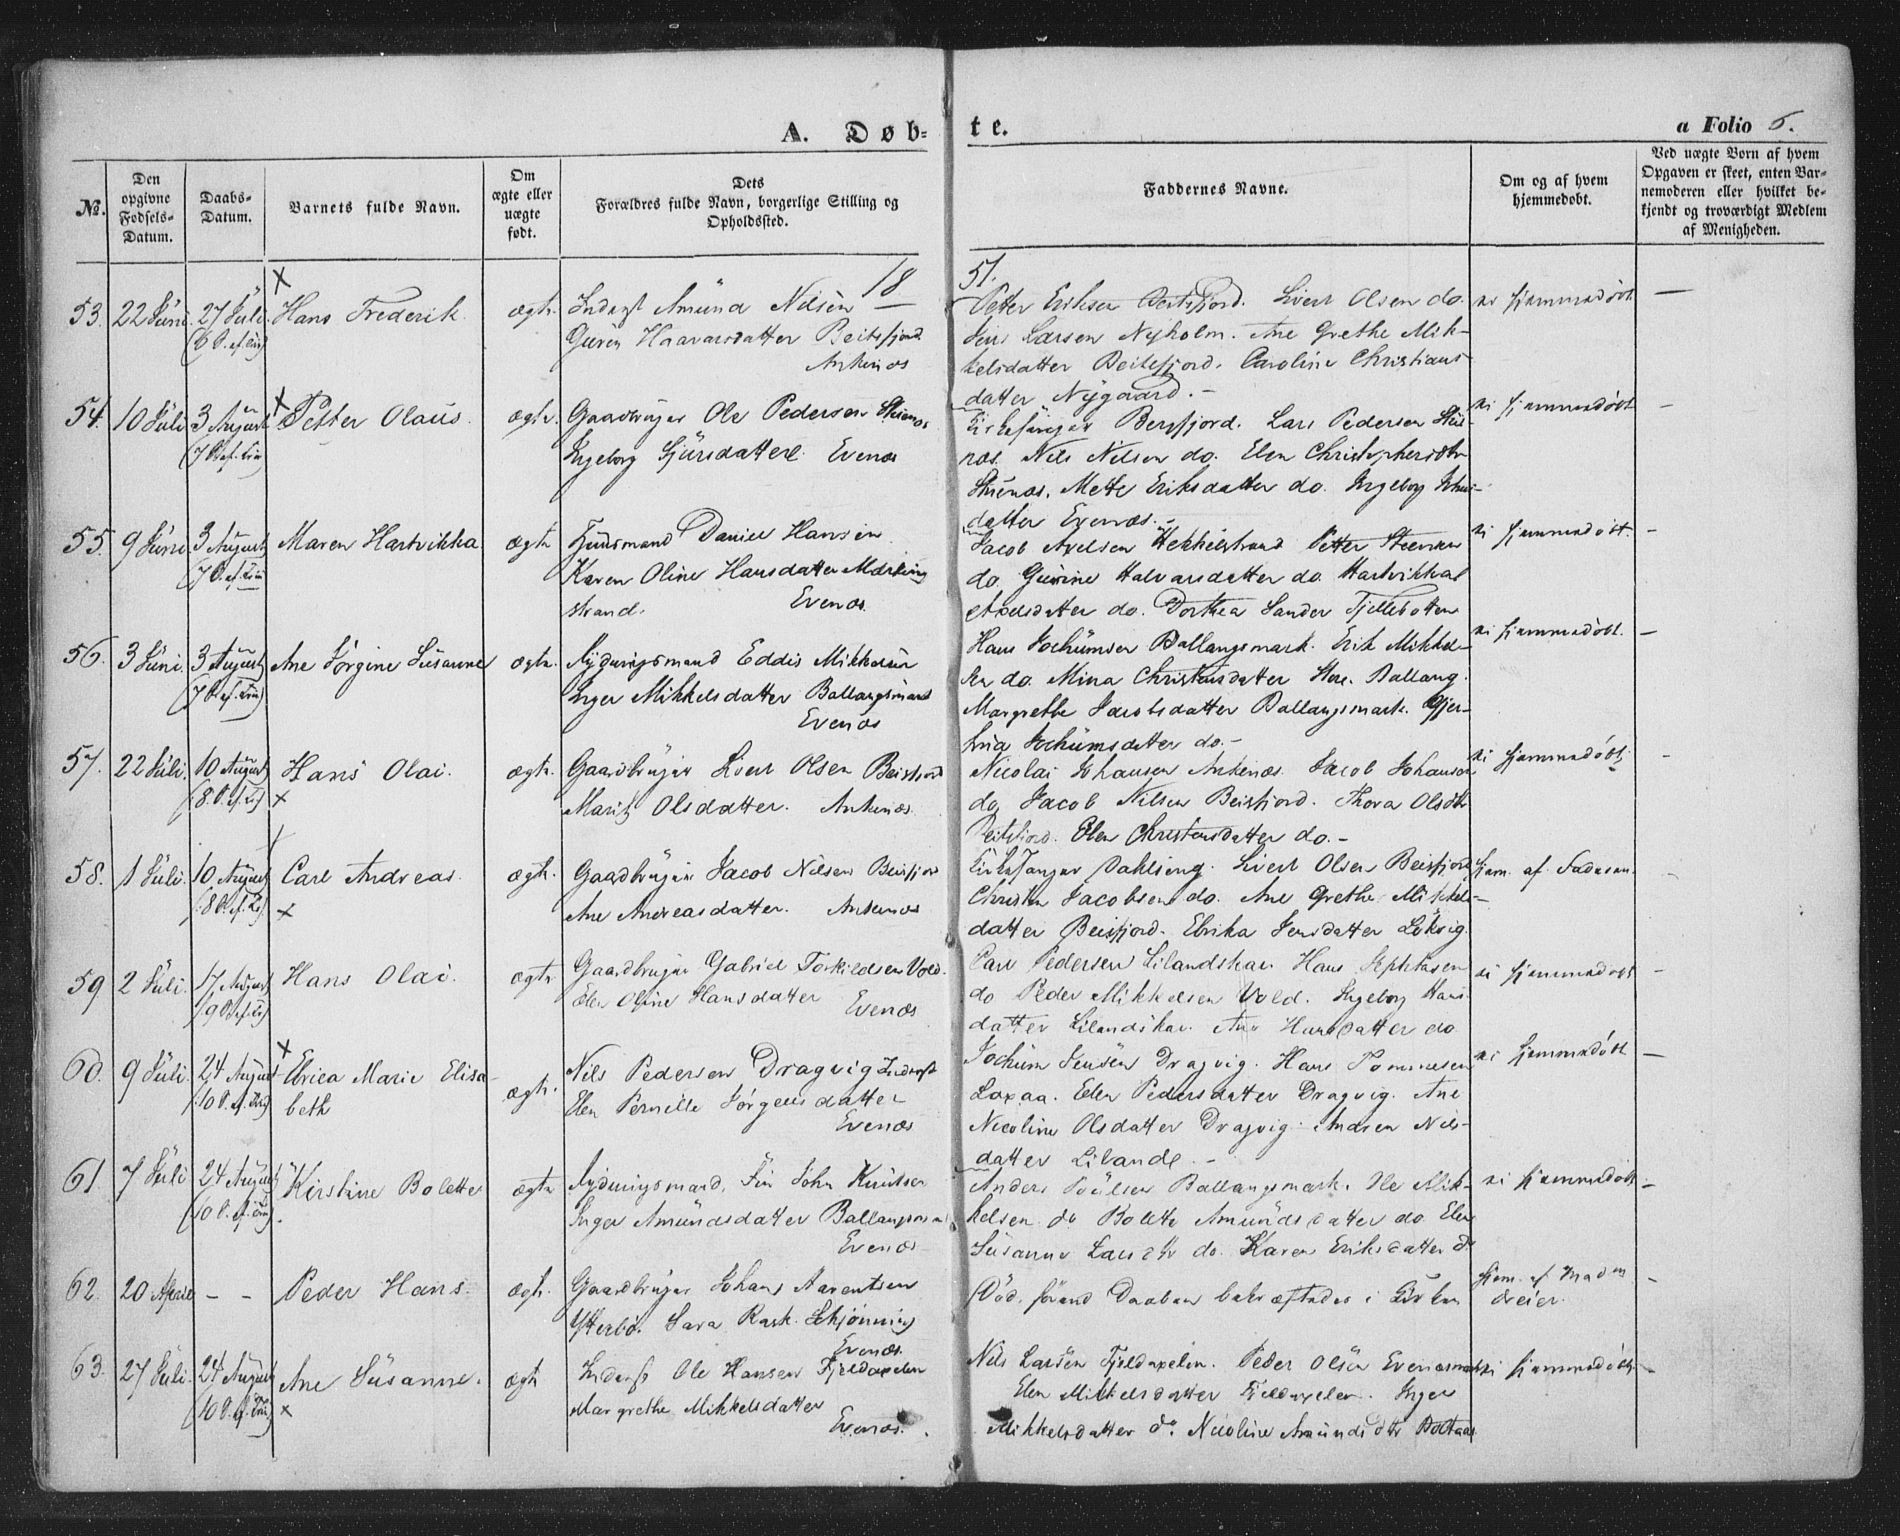 A. Døb-
te.
a Folio 6.
№.
Den opgivne Fødsels-Datum.
Daabs-Datum.
Barnets fulde Navn.
Om ægte eller uægte født.
Dets Forældres fulde Navn, borgerlige Stilling og Opholdssted.
Faddernes Navne.
Om og af hvem hjemmedøbt.
Ved uægte Børn af hvem Opgaven er skeet, enten Barnemoderen eller hvilket bekjendt og troværdigt Medlem af Menigheden.
1851.
53. 22 Juni 27 Juli Hans Frederik. ægte. Inderst Amund Nilsen
Guren Haavarsdatter Beitsfjord.
Ankenæs
Petter Eriksen Beitsfjord. Sivert Olsen do.
Jens Larsen Nyholm. Ane Grethe Mik-
kelsdatter Beitsfjord. Caroline Christians-
datter Nygaard. –
ei hjemmedøbt –
54. 10 Juli 3 August Petter Olaus. ægte. Gaardbruger Ole Pedersen
Ingeborg Sjursdatter. Evenæs
Kirkesanger Bergfjord. Lars Pedersen
næs. Nils Nilsen do. Elen Christophersdtr
Mette Eriksdatter do. Ingeborg
datter Evenæs. –
ei hjemmedøbt –
55. 9 Juni 3 August Maren Hartvikka ægte Huusmand Daniel Hansen
Karen Oline Hansdatter
strand. Evenæs.
Jacob Axelsen Hekkelstrand Petter Steensen
do. Gurine Halvarsdatter do. Hartvikka
Axelsdatter do. Dorthea Sander Fjellebotten
ei hjemmedøbt. –
56. 3 Juni. 3 August Ane Jørgine Susanne ægte. Rydningsmand Eddis Mikkelsen
Inger Mikkelsdatter Ballangsmark
Evenæs
Hans Jochumsen Ballangsmark. Erik Mikkel-
sen do. Mina Christensdatter Ballang.
Margrethe Jacobsdatter Ballangsmark. Gjer-
Jochumsdatter do. –
ei hjemmedøbt. –
57. 22 Juli. 10 August Hans Olai. ægte. Gaardbruger Sivert Olsen Beisfjord
Marit Olsdatter. Ankenæs.
Nicolai Johansen Ankenæs. Jacob Johansen
do. Jacob Nilsen Beisfjord. Thora Olsdtr
Beitsfjord. Elen Christensdatter do. –
ei hjemmedøbt –
58. 1 Juli. 10 August Carl Andreas. ægte. Gaardbruger Jacob Nilsen Beisfjord
Ane Andreasdatter. Ankenæs
Kirkesanger Dahling. Sivert Olsen Beisfjord
Christen Jacobsen do. Ane Grethe Mikkels-
datter Beisfjord. Ebrika Jensdatter
hjem. af Faderen. –
59 2 Juli. 17 August Hans Olai. ægte Gaardbruger Gabriel Torkildsen Vold.
Elen Oline Hansdatter Evenæs
Carl Pedersen Lilandskar Hans
do Peder Mikkelsen Vold. Ingeborg Hans-
datter Lilandskar. Ane Hansdatter do
ei hjemmedøbt –
60. 9 Juli. 24 August Ebrica Marie Elisa-
beth ægte. Nils Pedersen Dragvig Inderst
Elen Pernille Jørgensdatter
Evenæs
Jochum Jensen Dragvig. Hans Tommesen
Laxaa. Elen Pedersdatter Dragvig. Ane
Nicoline Olsdatter Dragvig. Andrea Nils-
datter Lilande. –
ei hjemmedøbt –
61. 7 Juli 24 August Kirstine Bolette ægte Rydningsmand, Fin John Knutsen
Inger Amundsdatter
Evenæs
Anders Poulsen Ballangsmark. Ole Mik-
kelsen do Bolette Amundsdatter do Elen
Susanne Larsdtr do. Karen Eriksdatter do
ei hjemmedøbt –
62. 20 April – – Peder Hans. ægte. Gaardbruger Johan Aarentsen
Sara Rask. Schjønning
Evenæs.
Død, førend Daaben bekræftedes i Kirken
hjem. af Mad
Dreier. –
63. 27 Juli. 24 August Ane Susanne. ægte Inderst Ole Hansen Fjeldaxelen
Margrethe Mikkelsdatter
Evenæs.
Nils Larsen Fjeldaxelen. Peder Olsen Evenæsmark
Elen Mikkelsdatter Fjeldaxelen. Inger
Mikkelsdatter do. Nicoline Amundsdtr
ei hjemmedøbt –